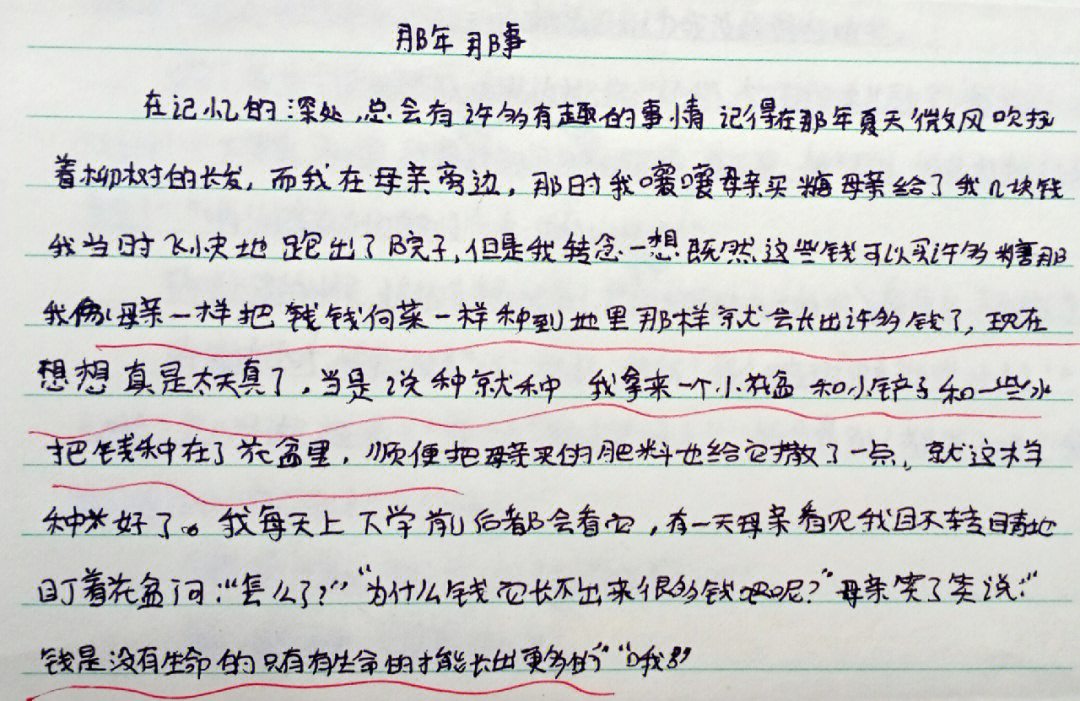 那年那事
在记忆的深处,总会有许多有趣的事情 记得在那年夏天微风吹拂
着柳树的长发,而我在母亲旁边,那时我嚷嚷母亲买糖母亲给了我几块钱
我当时飞快地跑出了院子,但是我转念一想既然这些钱可以买许多糖那
我像母亲一样把钱钱向菜一样种到地里那样就会长出许多钱了,现在
想想真是太天真了,当是说种就种 我拿来一个小花盆和小铲子和一些水
把钱种在了花盆里,顺便把母亲买的肥料也给它撒了一点,就这样
种好了。我每天上下学前后都会看它,有一天母亲看见我目不转睛地
盯着花盆问:“怎么了?”“为什么钱它长不出来很多钱呢?”母亲笑了笑说:“
钱是没有生命的只有有生命的才能长出更多的”“哦我